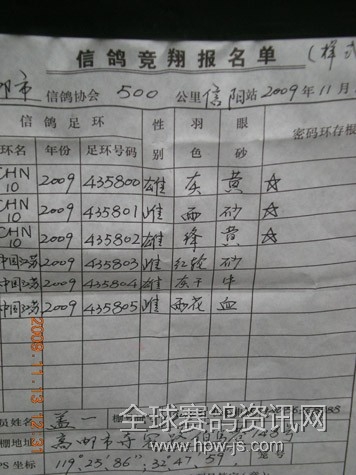 信鸽竞翔报名单
(样式
邮市 信鸽协会 500 公里 信阳站 2009年11月
信鸽足环 性别 羽色 眼砂 密码环存根
环名 年份 足环号码
CHN 10 2009 435800 雄 灰 黄 ☆
CHN 10 2009 435801 雌 雨 砂 ☆
CHN 10 2009 435802 雄 绛 黄 ☆
中国江苏 2009 435803 雌 红轮 砂
中国江苏 2009 435804 雄 灰 牛
中国江苏 2009 435805 雌 雨花 血
员姓名 盖一
棚地址 高邮市
PS 坐标 119.25.86" 32.47
2009.11.13 12:31
全球赛鸽资讯网
www.hpw-js.com